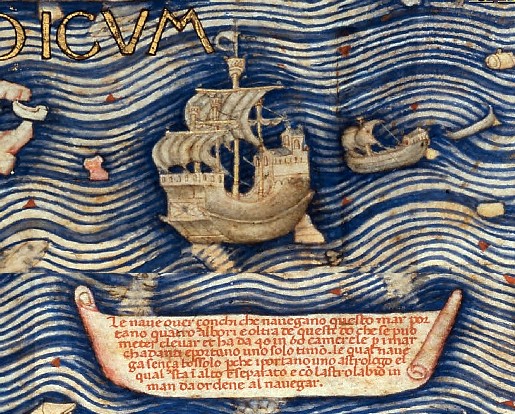 DICVM
Le naue ouer çonchi che nauegano questo mar por
tano quatro albori e oltra de questi do che se puo
meter e leuar et ha da 40 in 60 camerele per i mar
chadanti e portano uno solo timon le qual naue
ga sença bossolo per che i portano uno astrologo el
qual sta i alto e separato e cō lastrolabio in
man da ordene al nauegar